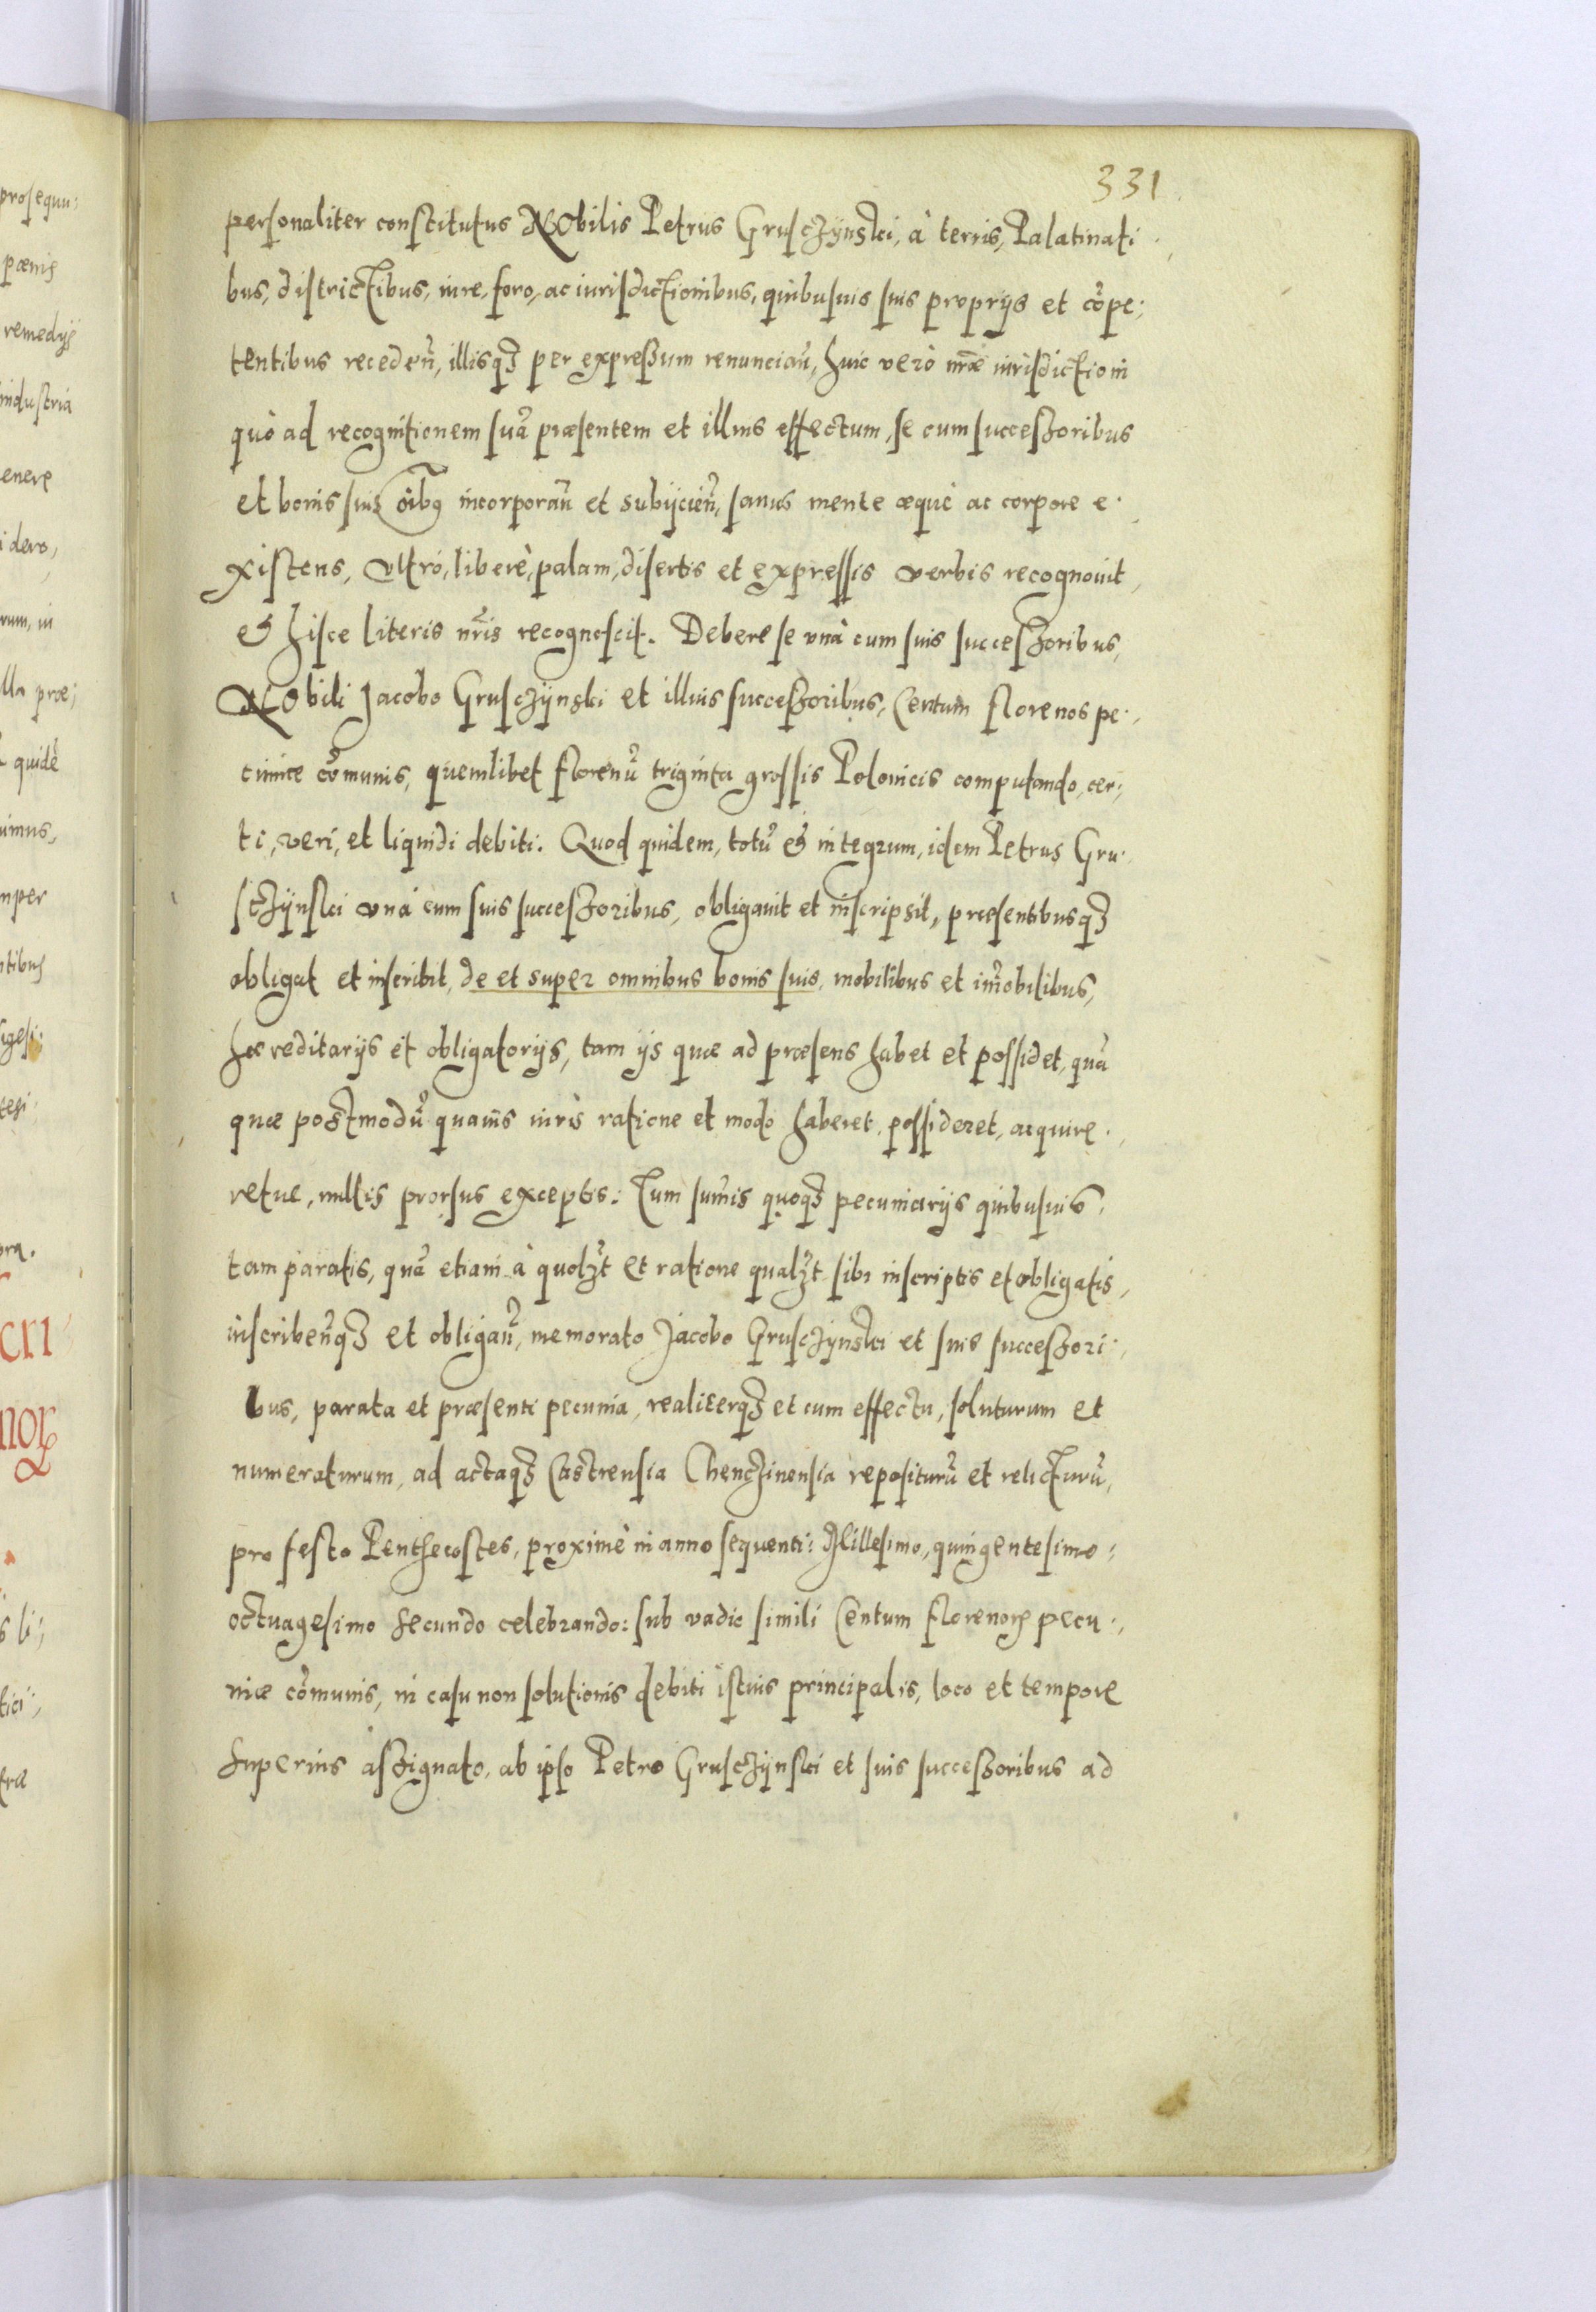 331
personaliter constitutus NObilis Petrus Grusczÿnski, à terris, Palatinati
bus, districtibus, iure, foro, ac iurisdictionibus, quibusuis suis proprijs et cõpe;
tentibus receden̄, illisq; per expreßum renuncian̄, huic verò nr̄æ iurisdictioni
quò ad recognitionem suã præsentem et illius effectum, se cum succeßoribus
et bonis suis oĩbꝰ incorporan̄ et subijcien̄, sanus mente æquè ac corpore e.
xistens, Vltrò, liberè, palam, disertis et expressis verbis recognouit,
& hisce literis nr̄is recognoscit. Debere se vnà cum suis succeßoribus,
NObili Jacobo Grusczÿnski et illius succeßoribus, Centum florenos pe.,
cuniæ cõmunis, quemlibet florenũ triginta grossis Polonicis computando, cer;
ti, veri, et liquidi debiti. Quod quidem, totũ & integrum, idem Petrus Gru.
sczÿnski vnà cum suis succeßoribus, obligauit et inscripsit, præsentibusq;
obligat et inscribit, de et super omnibus bonis suis, mobilibus et im̃obilibus,
hæreditarijs et obligatorijs, tam ijs quæ ad præsens habet et possidet, quã
quæ postmodũ quauis iuris ratione et modo haberet, possideret, acquire.,
retue, nullis prorsus exceptis: Tum sum̃is quoq; pecuniarijs quibusuis,
tam paratis, quã etiam à quolʒt et ratione qualʒt sibi inscriptis et obligatis,
inscriben̄q; et obligan̄, memorato Jacobo Grusczÿnski et suis succeßori.,
bus, parata et præsenti pecunia, realiterq; et cum effectu, soluturum et
numeraturum, ad actaq; Castrensia Chenczinensia repositurũ et relicturũ,
pro festo Penthecostes, proximè in anno sequenti: Millesimo, quingentesimo:
octuagesimo secundo celebrando: sub vadio simili Centum florenoꝝ pecu.,
niæ cõmunis, in casu non solutionis debiti istius principalis, loco et tempore
superius aßignato, ab ipso Petro Grusczÿnski et suis succeßoribus ad